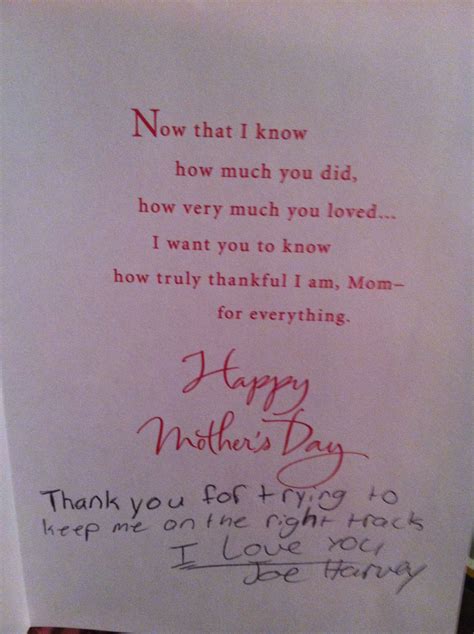 Now that I know
how much you did,
how very much you loved...
I want you to know
how truly thankful I am, Mom–
for everything.
Happy
Mother's Day
Thank you for trying to
keep me on the right track
I Love You
Joe Harvey